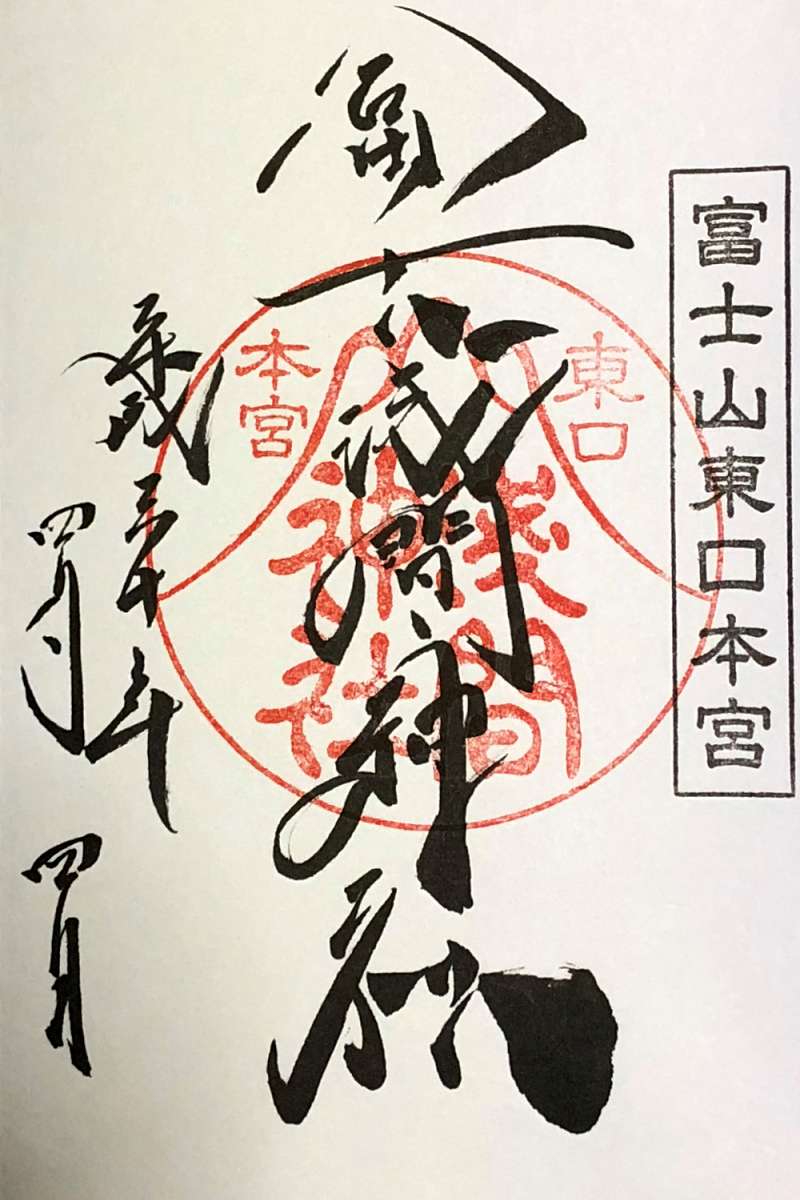 富士山東口本宮
冨士浅間神社
東口
本宮
淺間
神社
平成三十年
四月四日